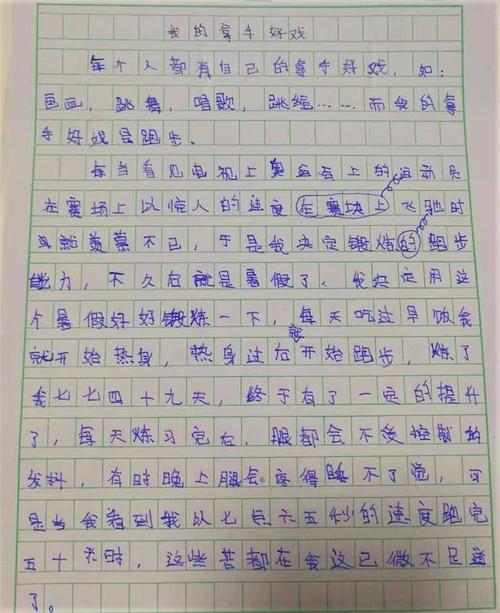 我的拿手好戏
每个人都有自己的拿手好戏，如：
画画，跳舞，唱歌，跳绳……而我的拿
手好戏是跑步。
每当看见电视上奥运会上的运动员
在赛场上以惊人的速度在赛场上飞驰时
我就羡慕不已，于是我决定锻炼的跑步
能力，不久后就是暑假了，我决定用这
个暑假好好锻炼一下，每天吃过早饭我
就开始热身，热身过后就开始跑步，炼了
我七七四十九天，终于有了一定的提升
了，每天炼习完后，腿都会不受控制的
发抖，有时晚上腿会疼得睡不了觉，可
是当我看到我以七点六五秒的速度跑完
五十米时，这些苦都在我这已微不足道
了。